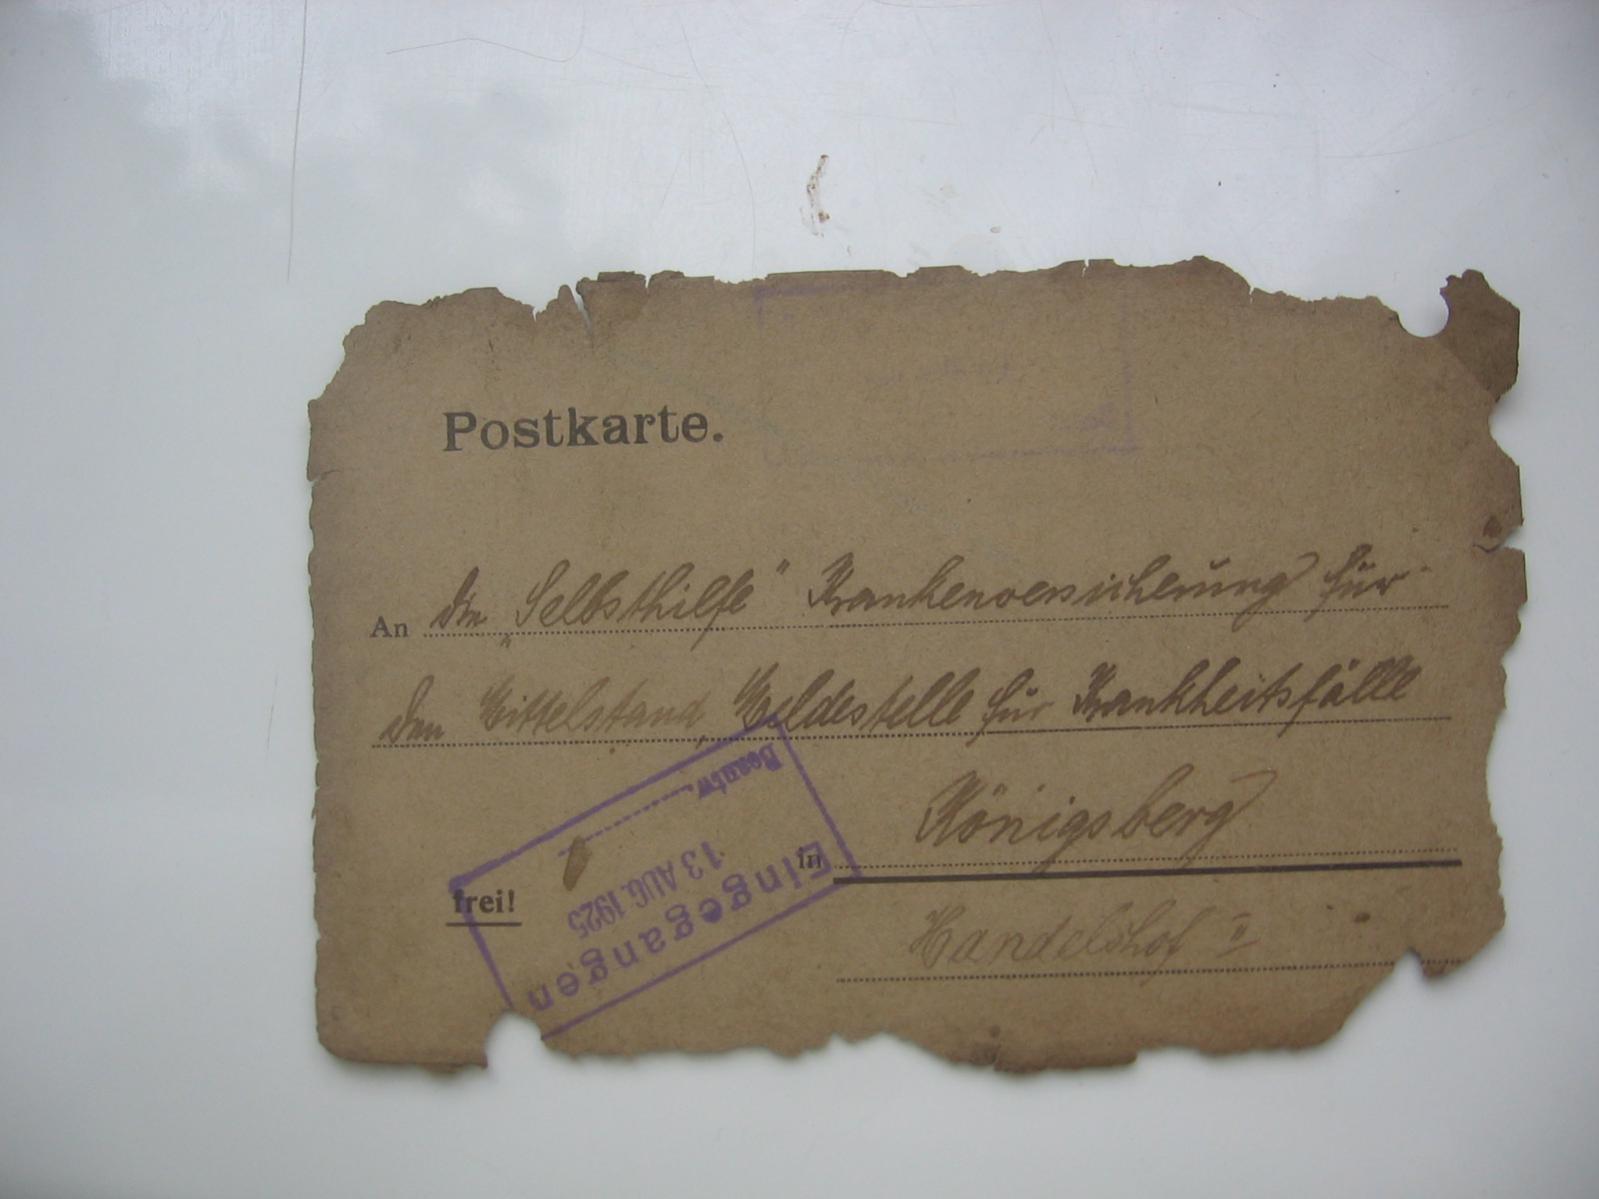 Postkarte.
An die „Selbsthilfe“ Krankenversicherung für
den Mittelstand, Meldestelle für Krankheitsfälle
in Königsberg
frei!
Handelshof II
Eingegangen
13 AUG. 1925
Beantw.